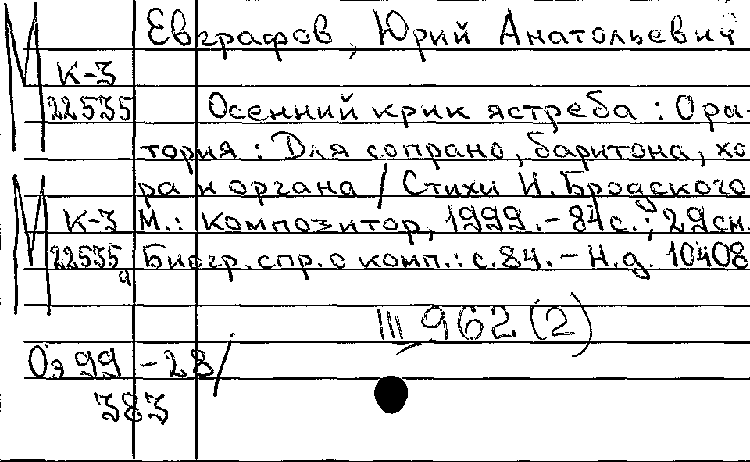 Евграфов, Юрий Анатольевич
М К-3
22535 Осенний крик ястреба : Ора-
тория : Для сопрано, баритона, хо
ра и органа / Стихи И. Бродского
М К-3 М.: Композитор, 1999. - 84 с.; 29 см.
22535а Биогр. спр. о комп.: с. 84. - Н.д. 10408
III 962 (2)
Оэ 99 - 28/
383